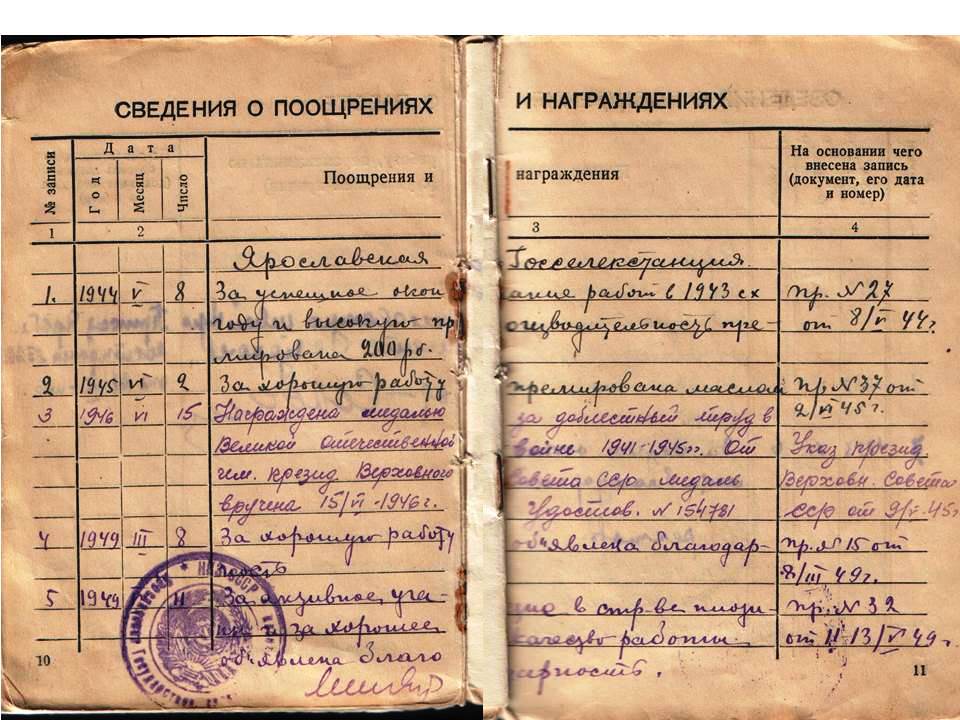 СВЕДЕНИЯ О ПООЩРЕНИЯХ И НАГРАЖДЕНИЯХ
№ записи
Дата
Год
Месяц
Число
Поощрения и награждения
На основании чего
внесена запись
(документ, его дата
и номер)
1 2 3 4
Ярославская Госселекстанция
1. 1944 V 8 За успешное окон ание работ в 1943 сх пр. N 27
году и высокую пр оизводительность пре- от 8/VI 44г.
мирована 200 рб.
2 1945 VI 2 За хорошую работу премирована маслом пр. N 37 от
2/VI 45г.
3 1946 VI 15 Награждена медалью за доблестный труд в
Великой отечественной войне 1941-1945гг. От Указ презид
им. презид Верховного Совета ССР медаль Верховн. Совета
вручена 15/VI-1946г. Удостов. N 154781 ССР от 9/V-45г
4 1949 III 8 За хорошую работу объявлена благодар- пр. N 15 от
ность 8/III 49г.
5 1949 11 За активное уча- в стр-ве пр. N 32
и за хорошее качество работы от 11 13/V 49г.
объявлена благо дарность.
10 11